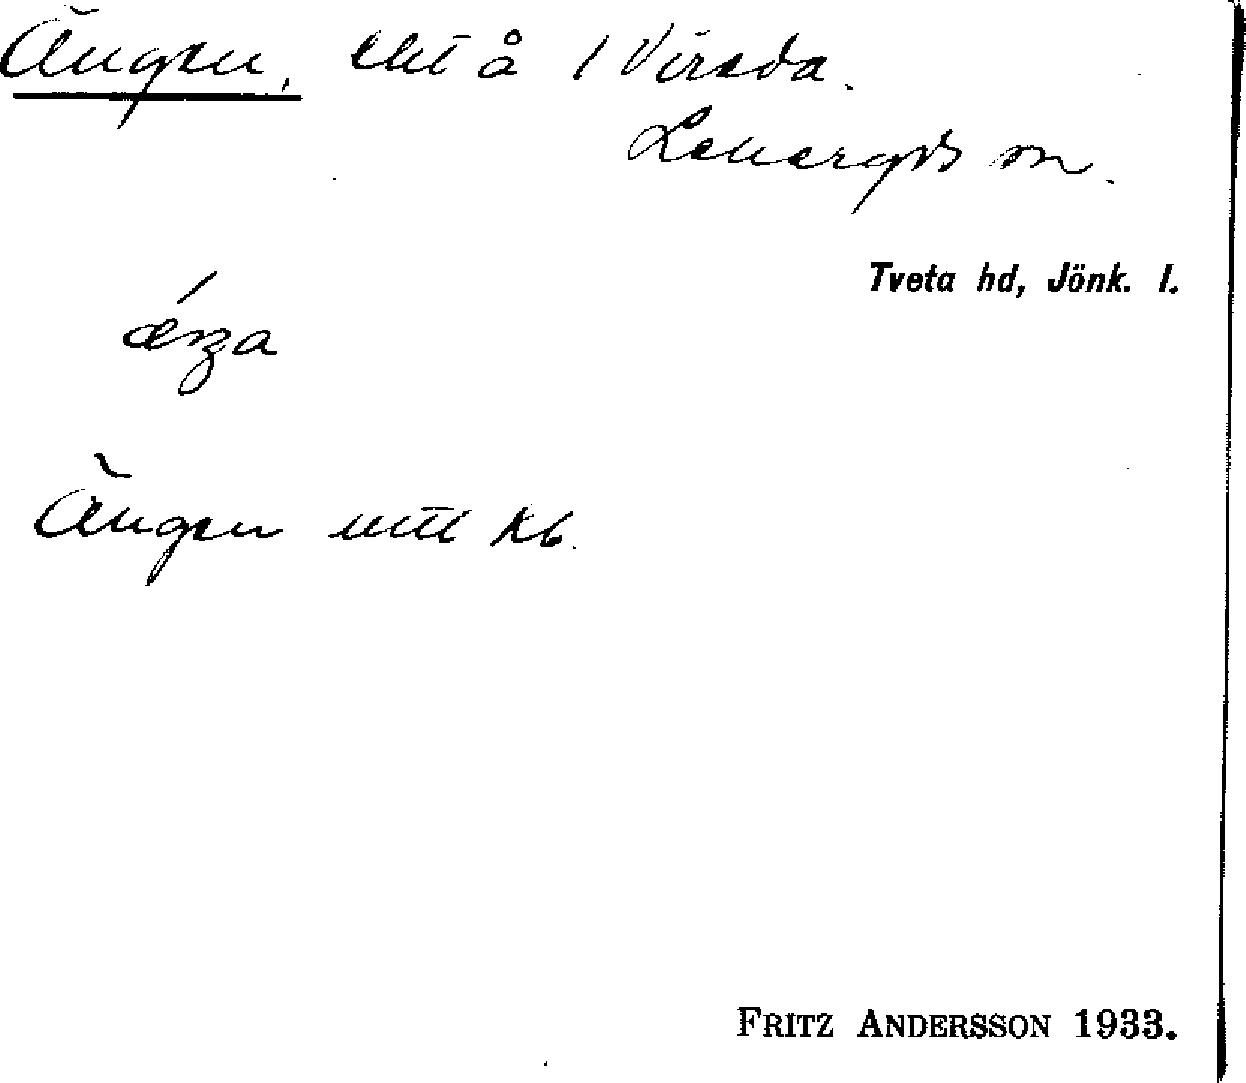 Ängen, lht å 1 Vireda.
Lekeryds sn.
Tveta hd, Jönk. l.
Ängen utt kb.
FRITZ ANDERSSON 1933.